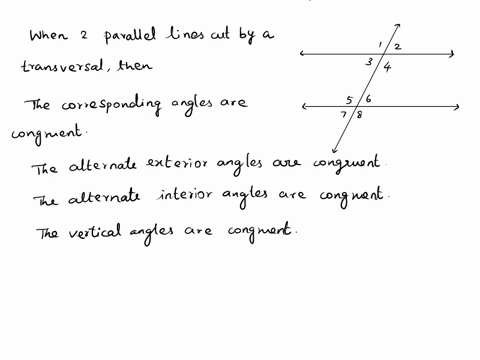 When 2 parallel lines cut by a
transversal, then
The corresponding angles are
congruent.
The alternate exterior angles are congruent.
The alternate interior angles are congruent.
The vertical angles are congruent.
1 2
3 4
5 6
7 8